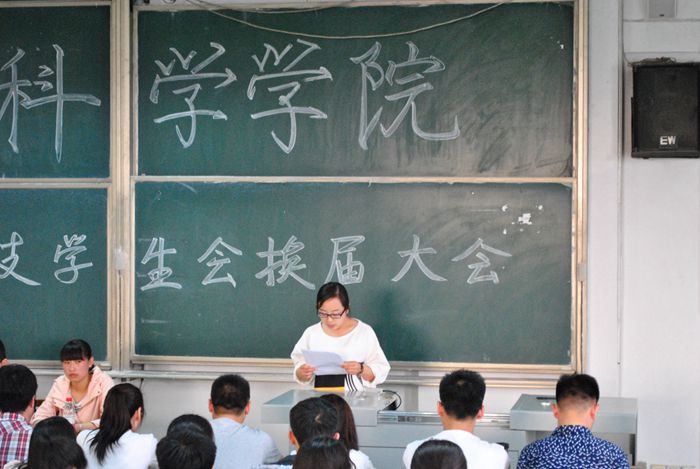 科学学院
技学生会换届大会
EW